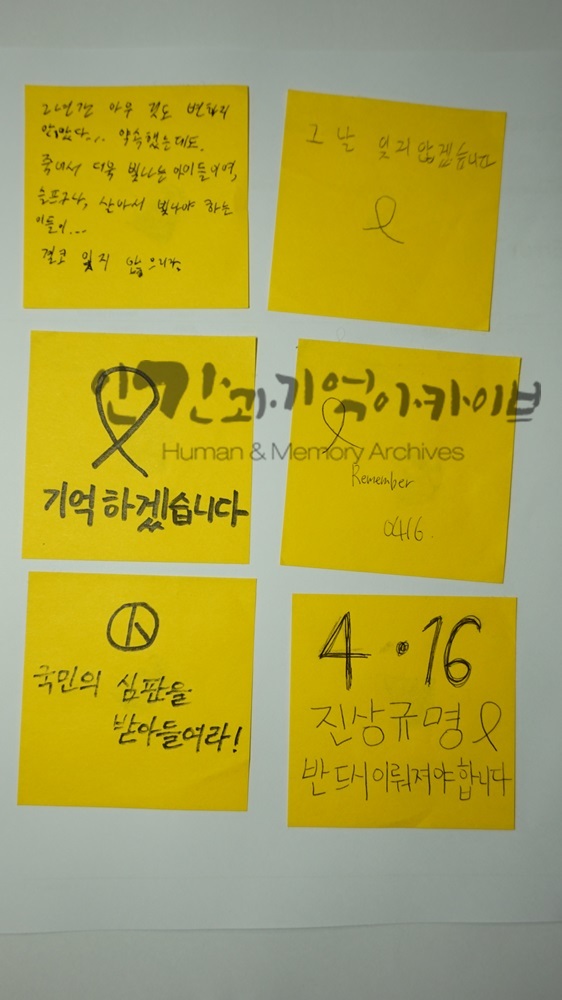 2년간 아무 것도 변하지
않았다... 약속했는데도.
죽어서 더욱 빛나는 아이들이여,
슬프구나, 살아서 빛나야 하는
이들이...
결코 잊지 않으리라.
그 날 잊지 않겠습니다
기억하겠습니다
Remember
0416.
국민의 심판을
받아들여라!
4·16
진상규명
반드시이뤄져야합니다
인간과기억아카이브
Human & Memory Archives